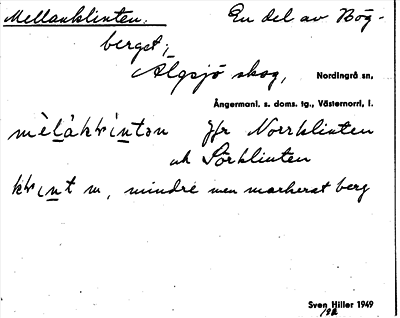 Mellanklinten. En del av Hög-
berget;
Älgsjö skog, Nordingrå sn,
Ångermanl. s. doms. tg., Västernorrl. l.
mèlákḷintən Jfr Norrklinten
och Sörklinten
kḷint m, mindre men markerat berg
Sven Hiller 1949